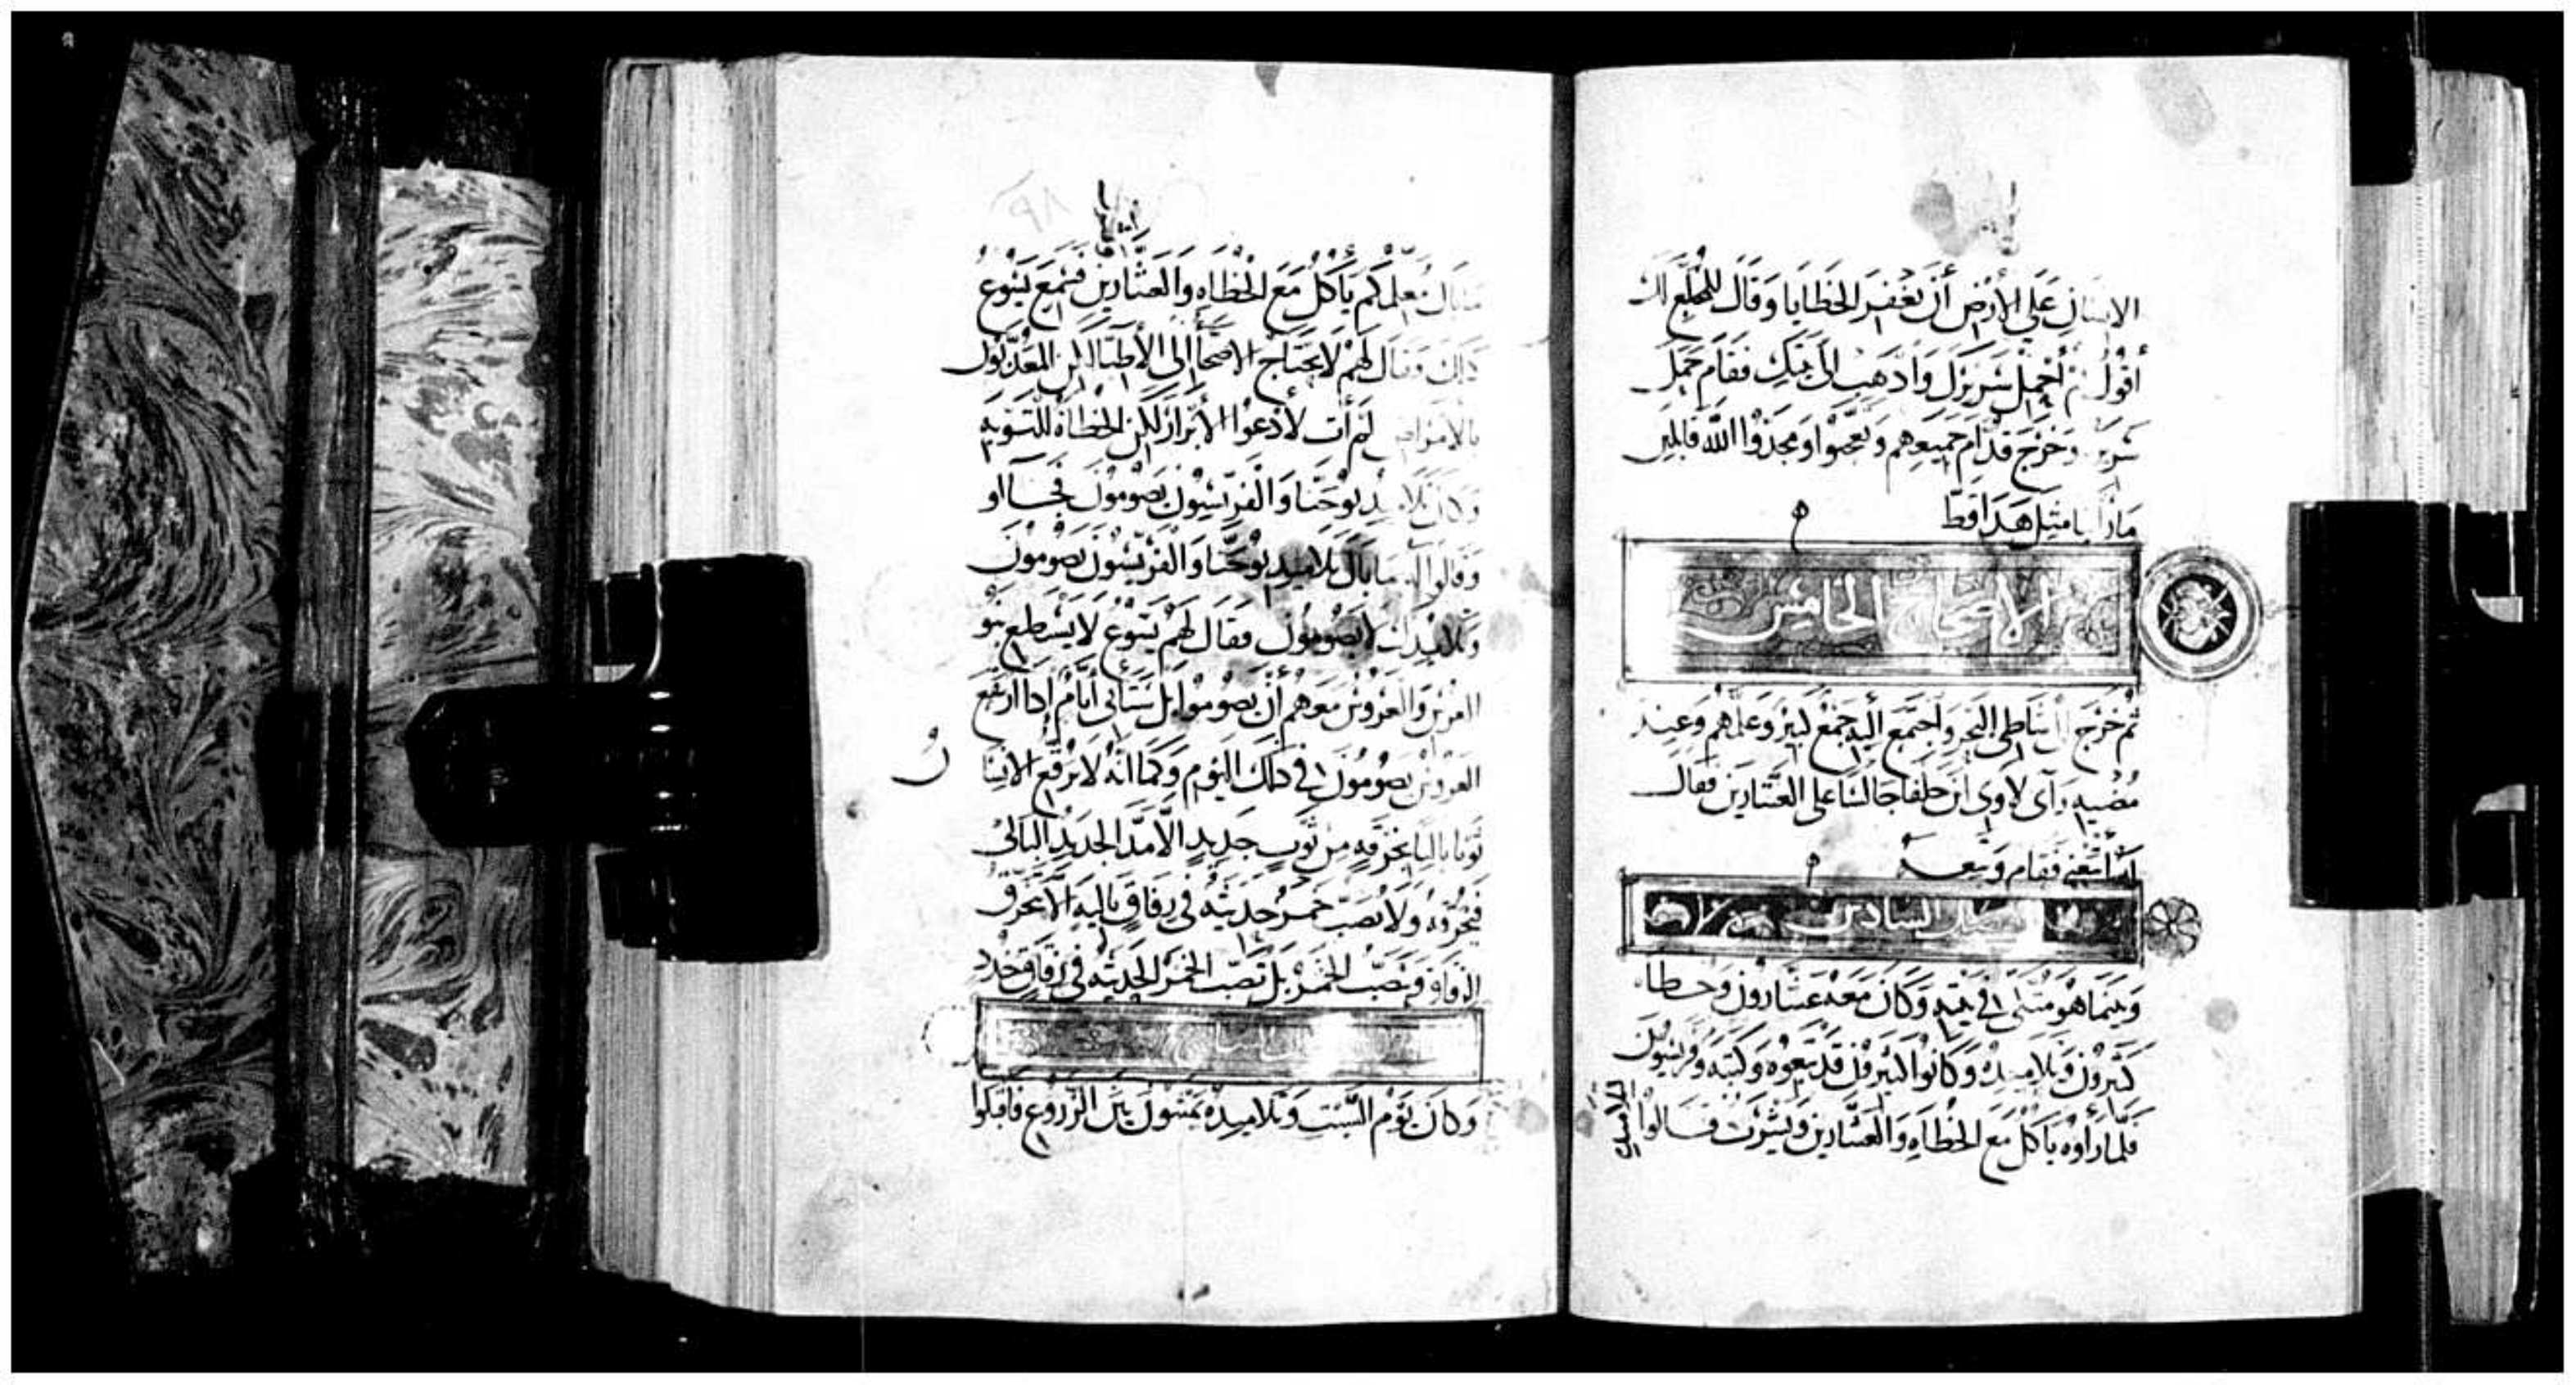 الانسان على الأرض أن يغفر الخطايا وقال للمخلع لك
أقول قم أحمل سريرك وادهب الى بيتك فقام حمل
سريره وخرج قدام جميعهم وتعجبوا ومجدوا الله قايلين
ما رأينا مثل هدا قط
الاصحاح الخامس
ثم خرج الى شاطى البحر واجتمع اليه جمع كبير وعلمهم وعند
مضيه رآى لاوى ابن حلفا جالسا على العشارين فقال
له اتبعنى فقام وتبعه
الفصل السادس
وبينما هو متكى في بيته وكان معه عشارون وخطاه
كثيرون وتلاميده وكانوا كثيرون قد تبعوه وكتبه وفريسيون
فلما رأوه ياكل مع الخطاه والعشارين ويشرب قالوا
لتلاميده
ما بال معلمكم يأكل مع الخطاه والعشارين فسمع يسوع
دلك وقال لهم لا يحتاج الاصحأ إلى الأطبا لكن المعدبون
بالامراض لم أت لأدعوا الأبرار لكن الخطاة للتوبه
وكان تلاميد يوحنا والفريسيون يصومون فجااو
وقالوا له ما بال تلاميد يوحنا والفريسيون يصومون
وتلاميدك لا يصومون فقال لهم يسوع لا يسطيع بنو
العرس والعروس معهم أن يصوموا بل ستأتى أيام إدا ارتفع
العروس يصومون في دلك اليوم وكما انه لا يرقع الانسا
ن
ثوبا باليا بخرقه من ثوب جديد الا مد الجديد البالى
فيخرقه ولا تصب خمر حديثه في زقاق باليه الا تخرق
الزقاق وتنصب الخمر بل تصب الخمر الحديثه في زقاق جدد
وكان يوم السبت وتلاميده يمشون بين الزروع فاقبلوا